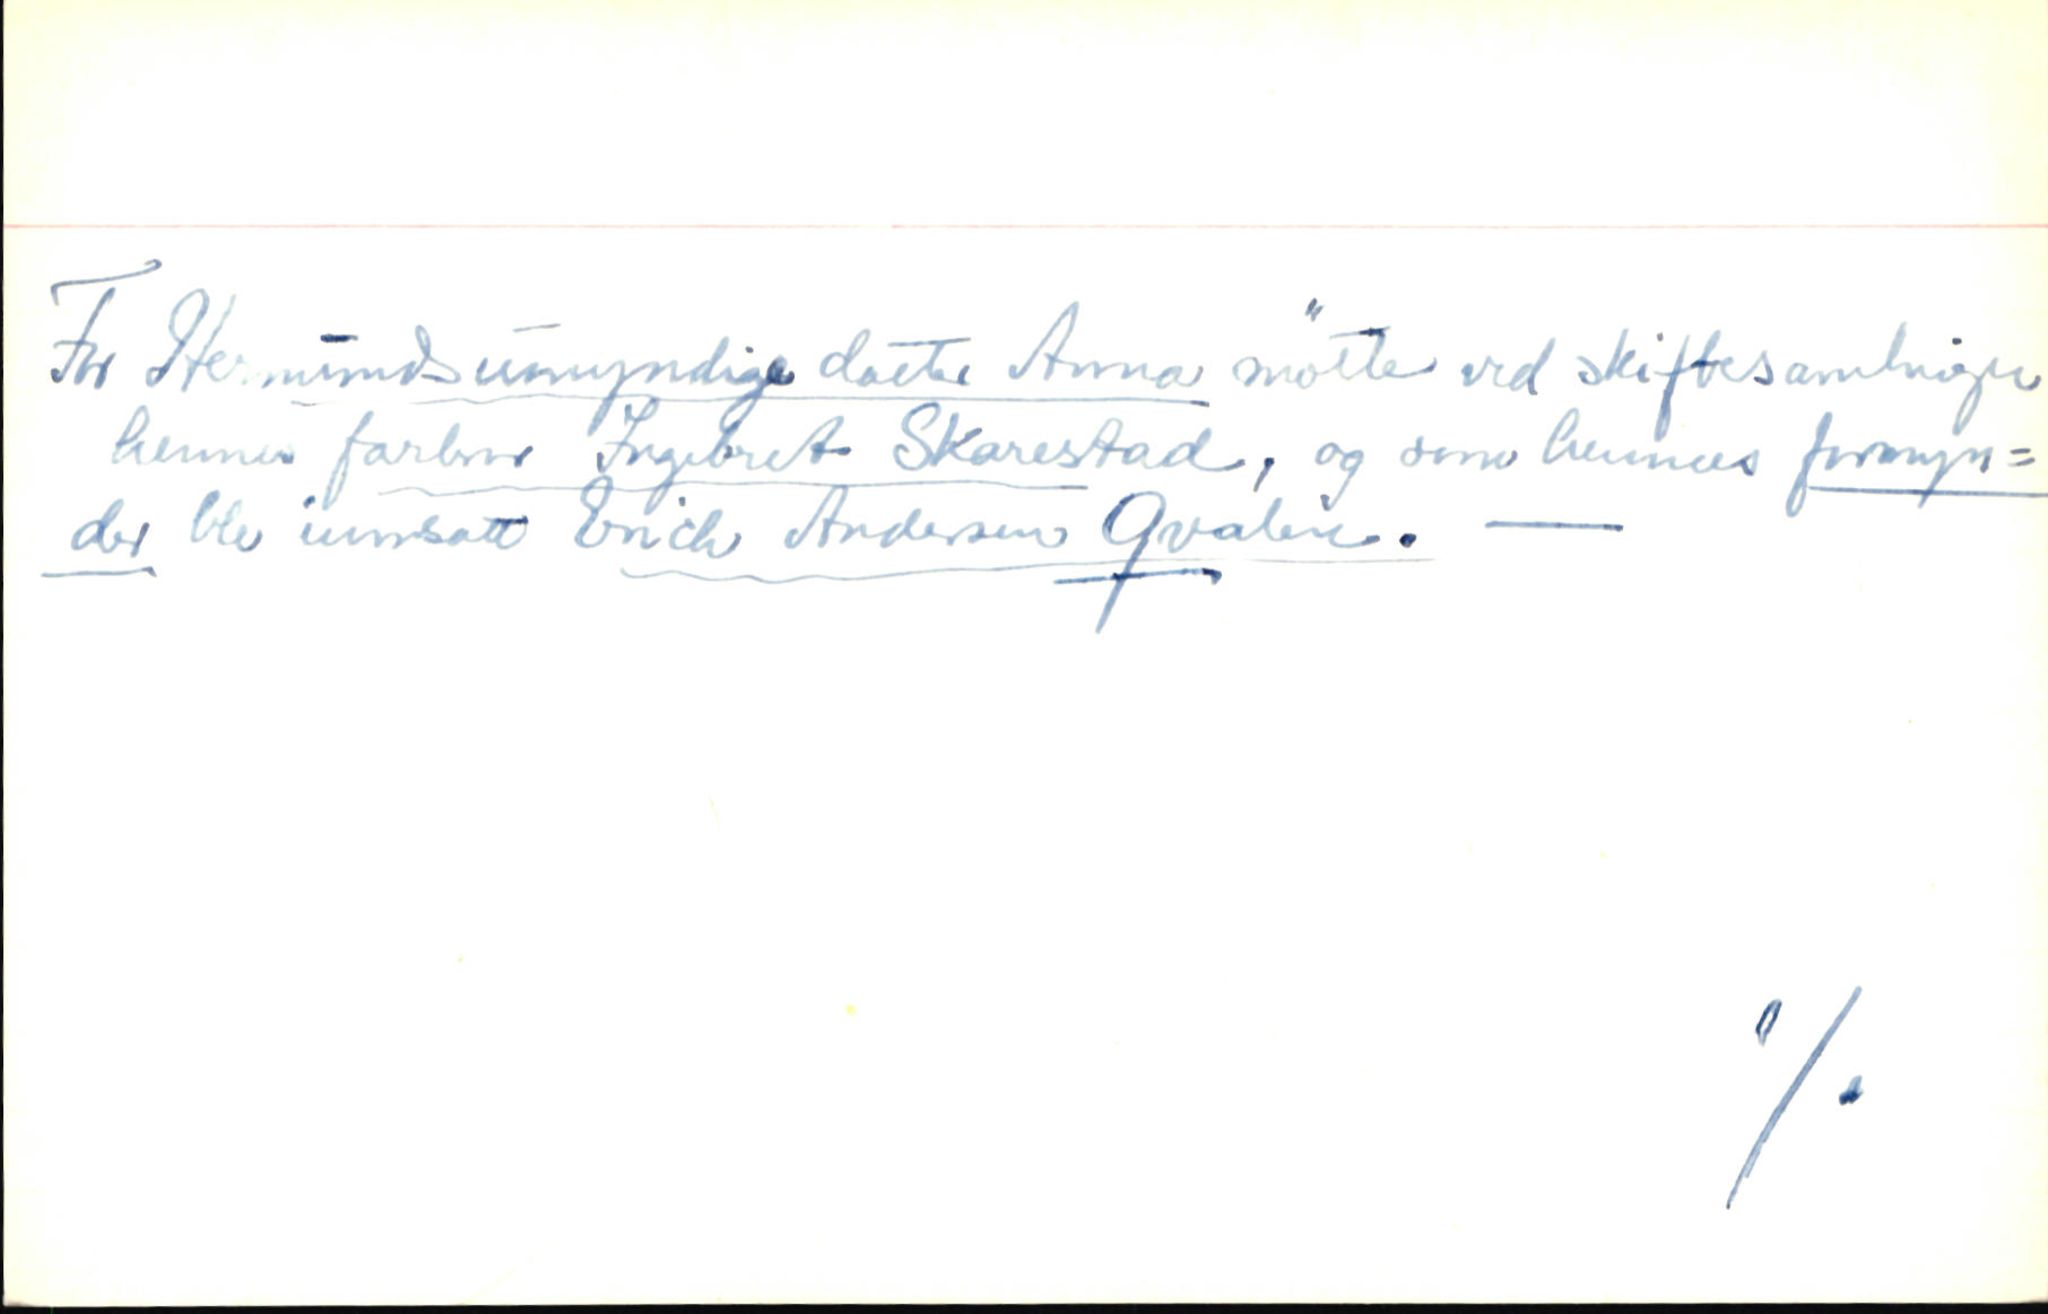 For Hermunds umyndige datter Anna mötte ved skiftesamlingen
hennes farbror Ingebret Skarestad, og som hennes formyn=
der ble innsatt Erich Andersen Qvalen. —
·/.